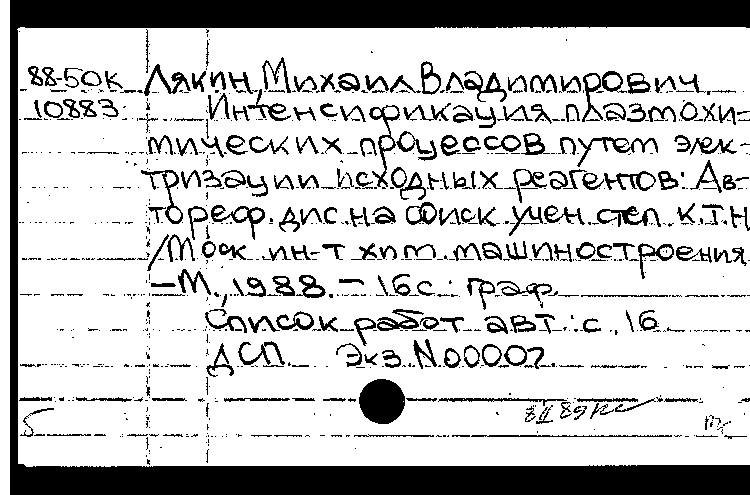 88-50к Лякин, Михаил Владимирович.
10883 Интенсификация плазмохи-
мических процессов путем элек-
тризации исходных реагентов: Ав-
тореф. дис. на соиск. учен. степ. к.т.н
/Моск. ин-т хим. машиностроения.
—М., 1988. — 16с.: граф.
Список работ авт.: с. 16
ДСП. Экз. N00007.
Б